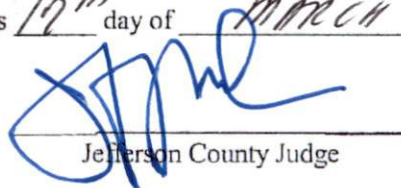 s 17th day of MARCH
Jefferson County Judge